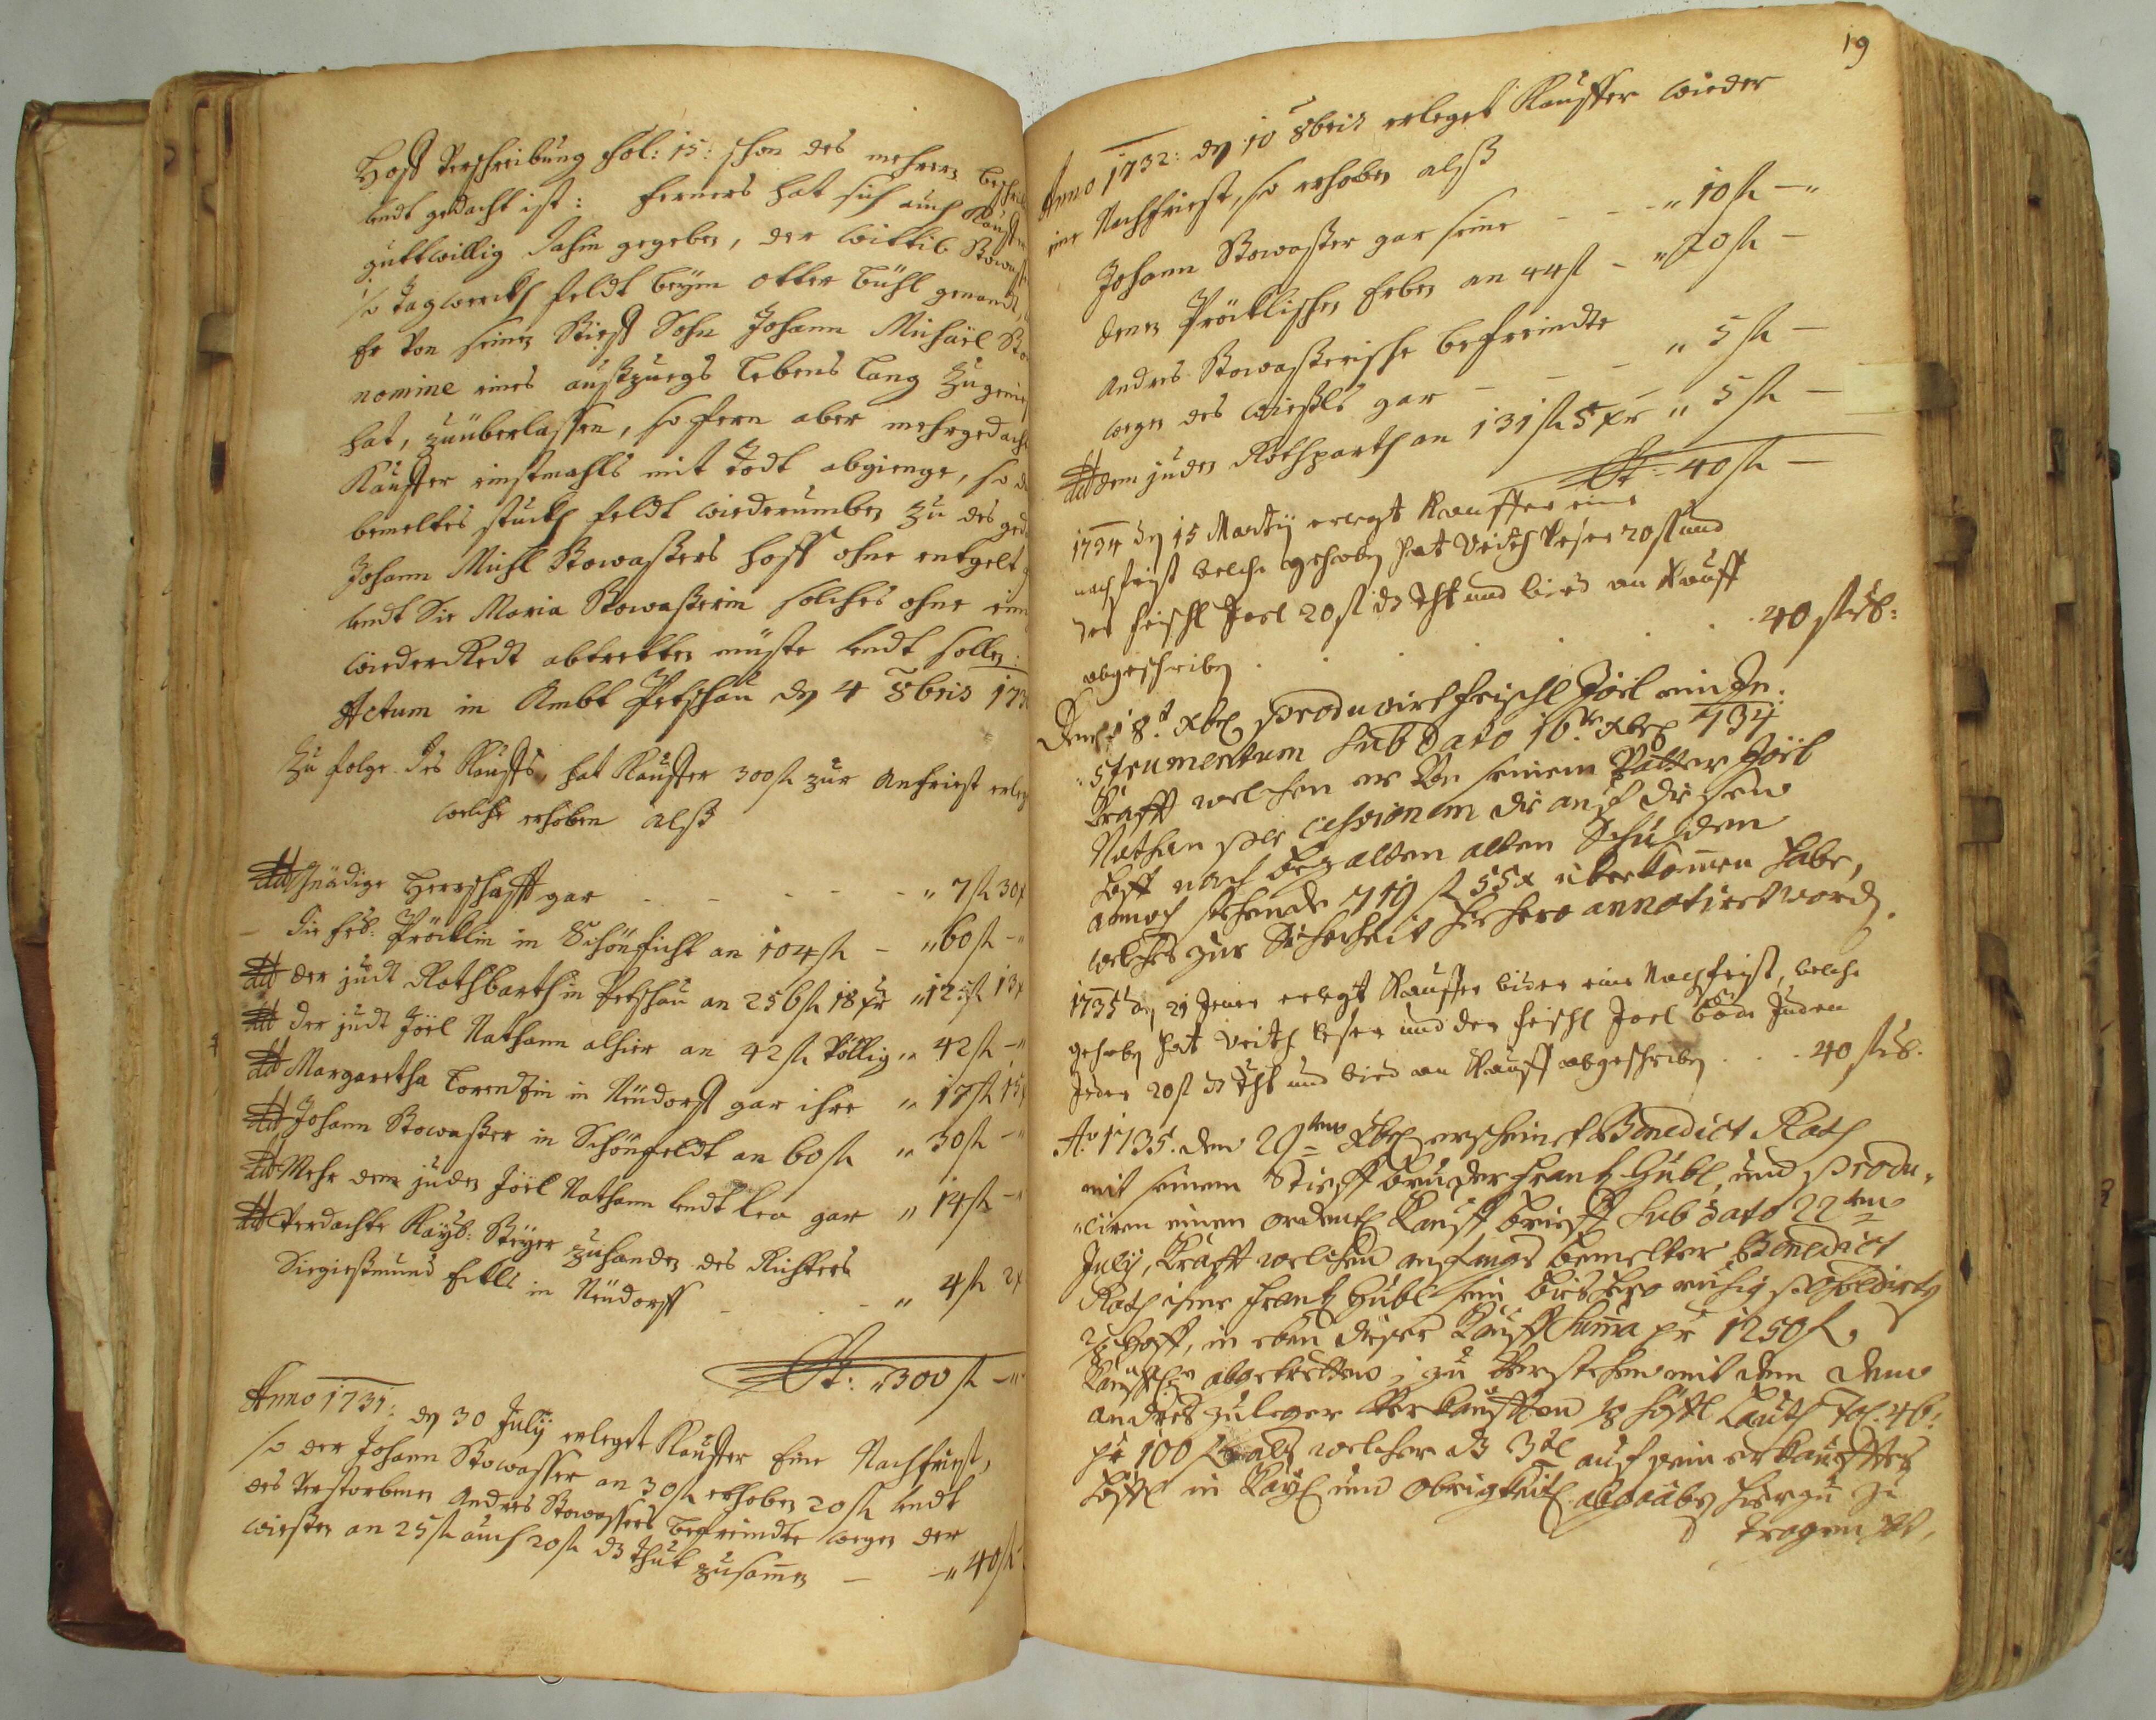 Hoff Verschreibung Fol: 15: schon des mehrern
undt gedacht ist: Ferners hat sich auch Kauffer
guttwillig dahin gegeben, der Wittib
so Tagwerckh feldt beym otter bühl genandt,
Er von seinen Stieff Sohn Johann Michäel
nomine eines außzuegs Lebens Lang
hat, zuüberlassen, so fern aber
Kauffer einstmahls mit Todt abgienge, so
bemeltes stuckh feldt wiederumben zu des
Johann Michl Stowaßers Hoff ohne entgelt
undt Sie Maria Stowaßerin solches ohne
wiederRedt abtretten müste undt sollen:
Actum in Ambt Petschau den 4 8bris 173
Zu folge des Kauffs, hat Kauffer 300 fl zur Anfriest
welche erhoben alß
Gnädige Herrschafft gar - - - - „ 7 fl 30 x
- die Fr: Pröcklin in Schönficht an 104 fl - „ 60 fl -„
der judt Rothbarth in Petschau an 256 fl 18 xr „ 125 fl 13 x
der judt Joel Nathann alhier an 42 fl Völlig „ 42 fl -„
Margaretha Lorentzin in Neudorff gar ihre „ 17 fl 15 x
Johann Stowaßer in Schönfeldt an 60 fl „ 30 fl -„
Mehr dem juden Joel Nathann undt Lea gar „ 14 fl -„
Verdachte Kayß: Steyer zuhanden des Richters
Siegießmund in Neudorff - - - „ 4 fl 2 x
St: „ 300 fl -„
Anno 1731: den 30 Julij erleget Kauffer Eine Nachfriest,
so der Johann Stowasser an 30 fl erhoben 20 fl undt
des Verstorbenen Andres Stowassers befreindte wegen der
wießen an 25 fl auch 20 fl dz thut zusam̅en - -„ 40 fl
19
Anno 1732: den 10 8bris erleget Kauffer wieder
eine Nachfriest, so erhoben alß
Johann Stowaßer gar seine - - - „ 10 fl -„
denen Pröcklischen Erben an 44 fl - „ 20 fl -
Andres Stowaßerische befreindte
wegen des wießls gar - - - „ 5 fl -
dem juden Rothparth an 131 fl 5 xr „ 5 fl -
St: 40 fl -
1734 den 15 Martij erlegt Kauffer eine
nachfrist welche gehoben hat Veith 20 fl und
des Feischl Joel 20 fl dz thut und wird an Kauff
abgeschriben . . . . . 40 fl
Den 18.t xbr producirt Feischl Joel ein In-
strumentum sub dato 16.te xbr 1734
Krafft welchen er von seinem Vatter Joel
Nathan per cessionem die auf disem
Hoff nach bezalten alten Schulden
annoch stehende 719 fl 55 x überkom̅en habe,
welches zur Sicherheit hiehero annotiret worden.
1735 den 29 Jener erlegt Kauffer wider eine Nachfrist, welche
gehoben hat Veith und der Feischl Joel Juden
Jeder 20 fl dz thut und wird an Kauff abgeschriben . . . 40 fl
Ao 1735. den 29ten xbr erscheinet Benedict Rath
mit seinem Stieffbruder Frantz Hübl, und produ-
ciren einen ordentl Kauff brieff sub dato 22ten
Julij, Krafft welchen anfangs bemelter Benedict
Rath ihme Frantz Hübl sein bis hero ruhig
Hoff, in eben diser Kauff Sum̅a pr 1250 fl.
abgetretten, zu verstehen mit dem denen
andres zuleger verkaufften Höffl Lauth Fol. 46:
pr 100 welcher dz 3tl auf sein erkaufftes
Höffl in Kayl und Obrigkeitl abgaaben hierzu zu
tragen hat,